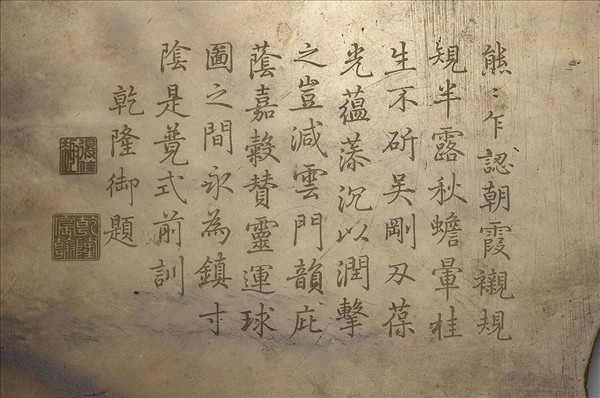 熊〻乍認朝霞襯規
規半露秋蟾暈桂
生不斫吳剛刃葆
光蘊藻沉以潤擊
之豈減雲門韻庇
蔭嘉穀贊靈運球
圖之間永為鎮寸
陰是競式前訓
乾隆御題
乾隆宸翰